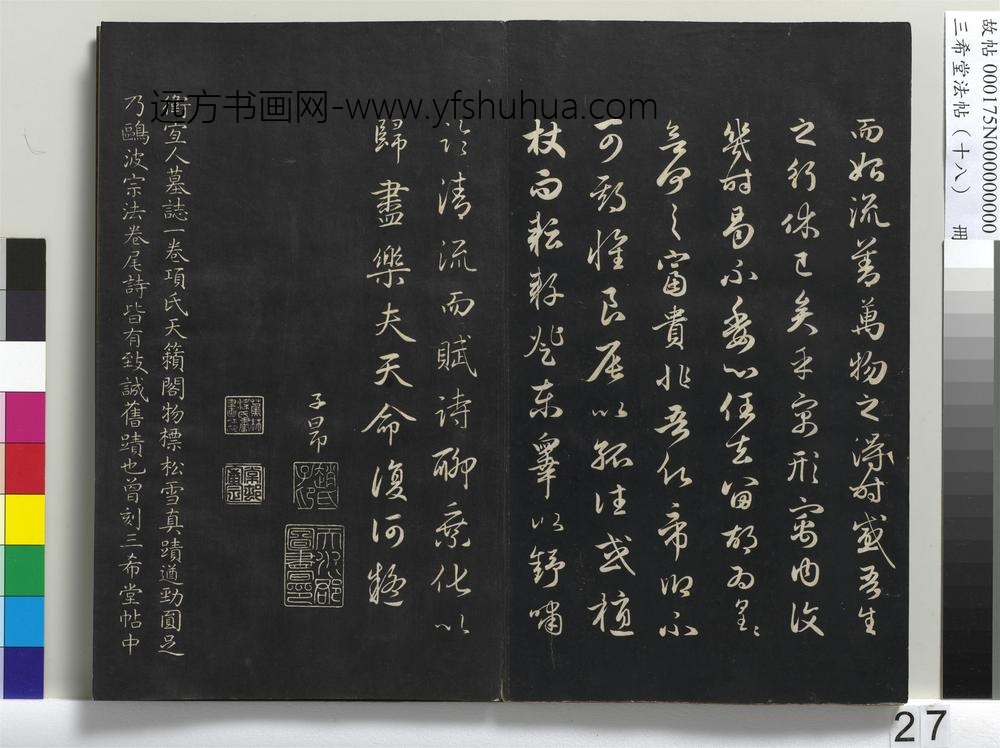 故帖 000175N000000000
三希堂法帖（十八） 冊
远方书画网-www.yfshuhua.com
而始流善萬物之得时感吾生
之行休已矣乎寓形寓内復
幾时曷不委心任去留胡为遑〻
欲何之富貴非吾願帝鄉不
可期懷良辰以孤往或植
杖而耘耔登東皋以舒嘯
臨清流而賦詩聊乘化以
歸盡樂夫天命復何疑
子昂
趙氏子昂
天水郡圖書印
衛宜人墓誌一卷項氏天籟閣物標松雪真蹟遒勁圓足
乃鷗波宗法卷尾詩皆有致誠舊蹟也曾刻三希堂帖中
27